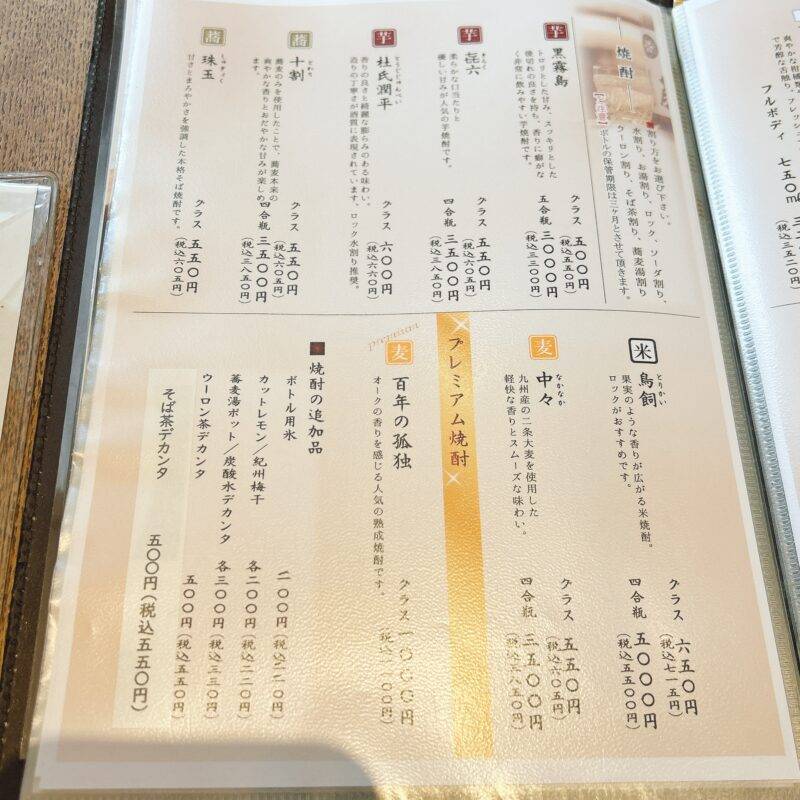 焼酎
■割り方をお選び下さい。
水割り、お湯割り、ロック、ソーダ割り、
ウーロン割り、そば茶割り、蕎麦湯割り
【ご注意】ボトルの保管期限は三ヶ月とさせて頂きます。
芋 黒霧島
トロリとした甘み、スッキリとした
後切れの良さを持ち、香りに癖がな
く非常に飲みやすい芋焼酎です。
グラス 五〇〇円
(税込五五〇円)
五合瓶 三〇〇〇円
(税込三三〇〇円)
芋 㐂六
きろく
柔らかな口当たりと
優しい甘みが人気の芋焼酎です。
グラス 五五〇円
(税込六〇五円)
四合瓶 三五〇〇円
(税込三八五〇円)
芋 杜氏潤平
とうじじゅんぺい
香りの良さと綺麗な膨らみのある味わい。
造りの丁寧さが酒質に表現されています、ロック水割り推奨。
グラス 六〇〇円
(税込六六〇円)
蕎 十割
とわり
蕎麦のみを使用したことで、蕎麦本来の
爽やかな香りとおだやかな甘みが楽しめ
ます。
グラス 五五〇円
(税込六〇五円)
四合瓶 三五〇〇円
(税込三八五〇円)
蕎 珠玉
しゅぎょく
甘さとまろやかさを強調した本格そば焼酎です。
グラス 五五〇円
(税込六〇五円)
米 鳥飼
とりかい
果実のような香りが広がる米焼酎。
ロックがおすすめです。
グラス 六五〇円
(税込七一五円)
四合瓶 五〇〇〇円
(税込五五〇〇円)
麦 中々
なかなか
九州産の二条大麦を使用した
軽快な香りとスムーズな味わい。
グラス 五五〇円
(税込六〇五円)
四合瓶 三五〇〇円
(税込三八五〇円)
プレミアム焼酎
Premium
麦 百年の孤独
オークの香りを感じる人気の熟成焼酎です。
グラス 一〇〇〇円
(税込一一〇〇円)
■焼酎の追加品
ボトル用氷 一〇〇円(税込一一〇円)
カットレモン/紀州梅干 各二〇〇円(税込二二〇円)
蕎麦湯ポット/炭酸水デカンタ 各三〇〇円(税込三三〇円)
ウーロン茶デカンタ 五〇〇円(税込五五〇円)
そば茶デカンタ 五〇〇円(税込五五〇円)
フルボディ 七五〇ml